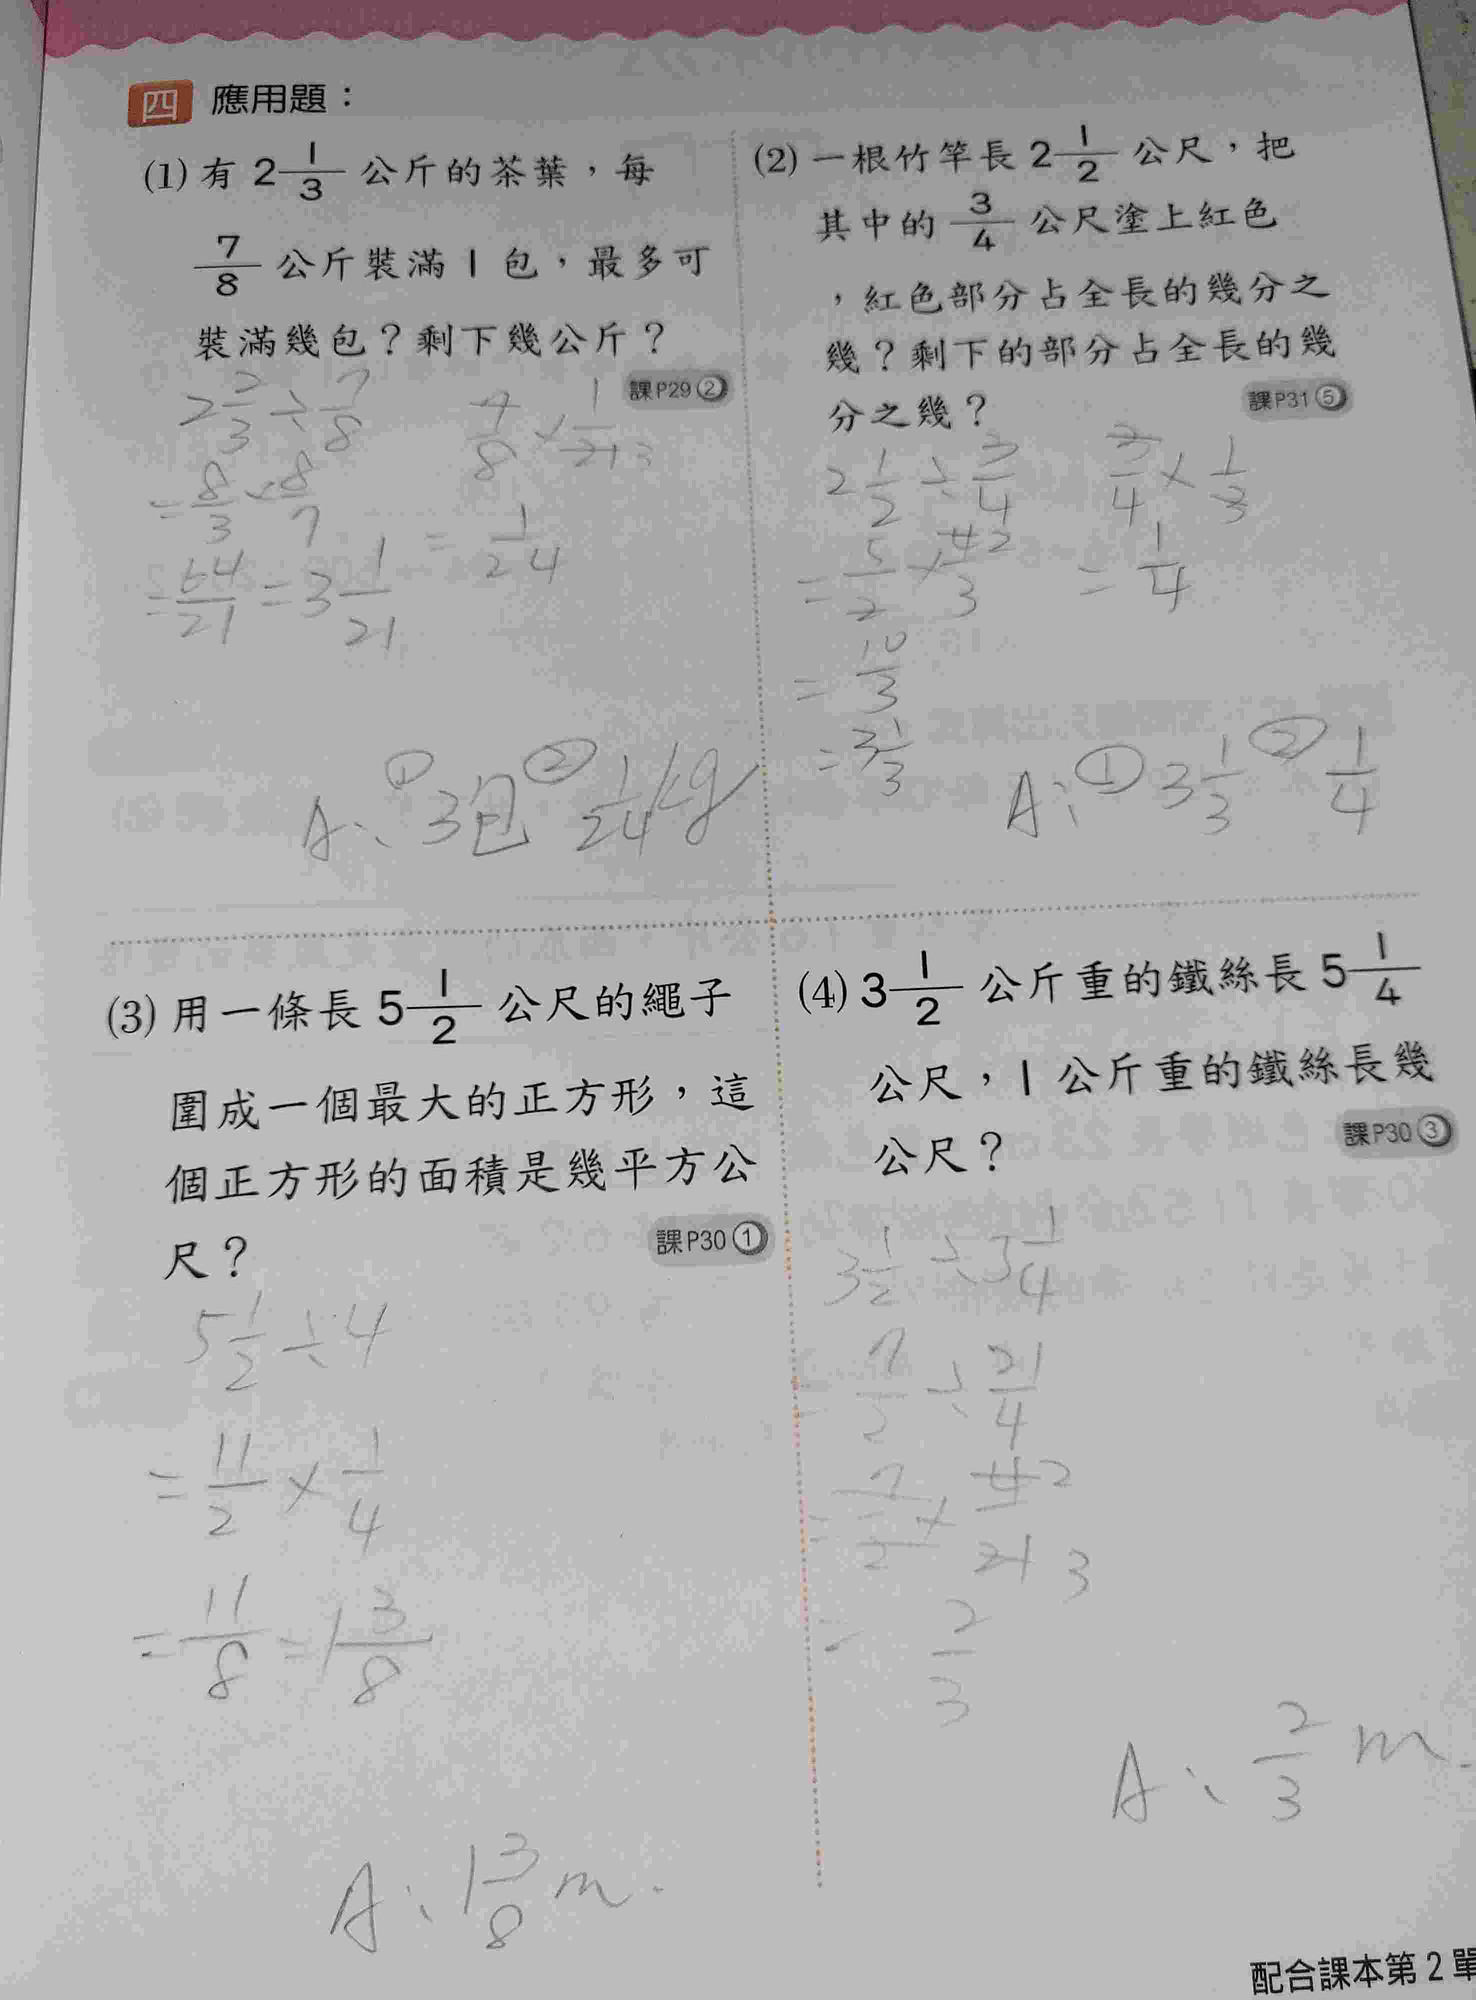 四 應用題：
(1) 有 2 1/3 公斤的茶葉，每
7/8 公斤裝滿 1 包，最多可
裝滿幾包？剩下幾公斤？
課P29 ②
2 2/3 ÷ 7/8
= 8/3 × 8/7
= 64/21 = 3 1/21
7/8 × 1/21 3
= 1/24
A: ① 3包 ② 1/24 kg
(2) 一根竹竿長 2 1/2 公尺，把
其中的 3/4 公尺塗上紅色
，紅色部分占全長的幾分之
幾？剩下的部分占全長的幾
分之幾？
課P31 ⑤
2 1/2 ÷ 3/4
= 5/2 × 4 2/3
= 10/3
= 3 1/3
3/4 × 1/3
= 1/4
A: ① 3 1/3 ② 1/4
(3) 用一條長 5 1/2 公尺的繩子
圍成一個最大的正方形，這
個正方形的面積是幾平方公
尺？
課P30 ①
5 1/2 ÷ 4
= 11/2 × 1/4
= 11/8 = 1 3/8
A: 1 3/8 m.
(4) 3 1/2 公斤重的鐵絲長 5 1/4
公尺，1 公斤重的鐵絲長幾
公尺？
課P30 ③
3 1/2 ÷ 5 1/4
= 7/2 ÷ 21/4
= 7/2 × 4 2/21 3
= 2/3
A: 2/3 m.
配合課本第 2 單